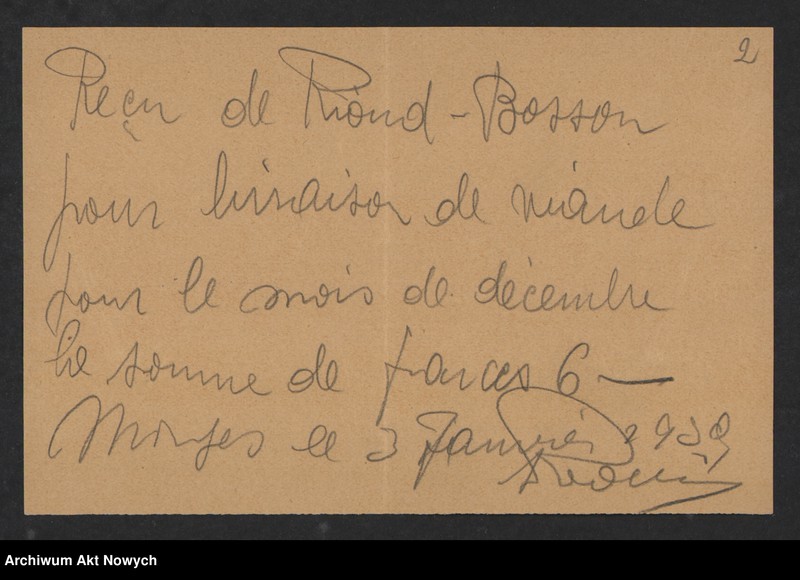 2
Reçu de Riond-Bosson
pour livraison de viande
pour le mois de décembre
la somme de francs 6 —
Morges le 3 Janvier 1939
Archiwum Akt Nowych